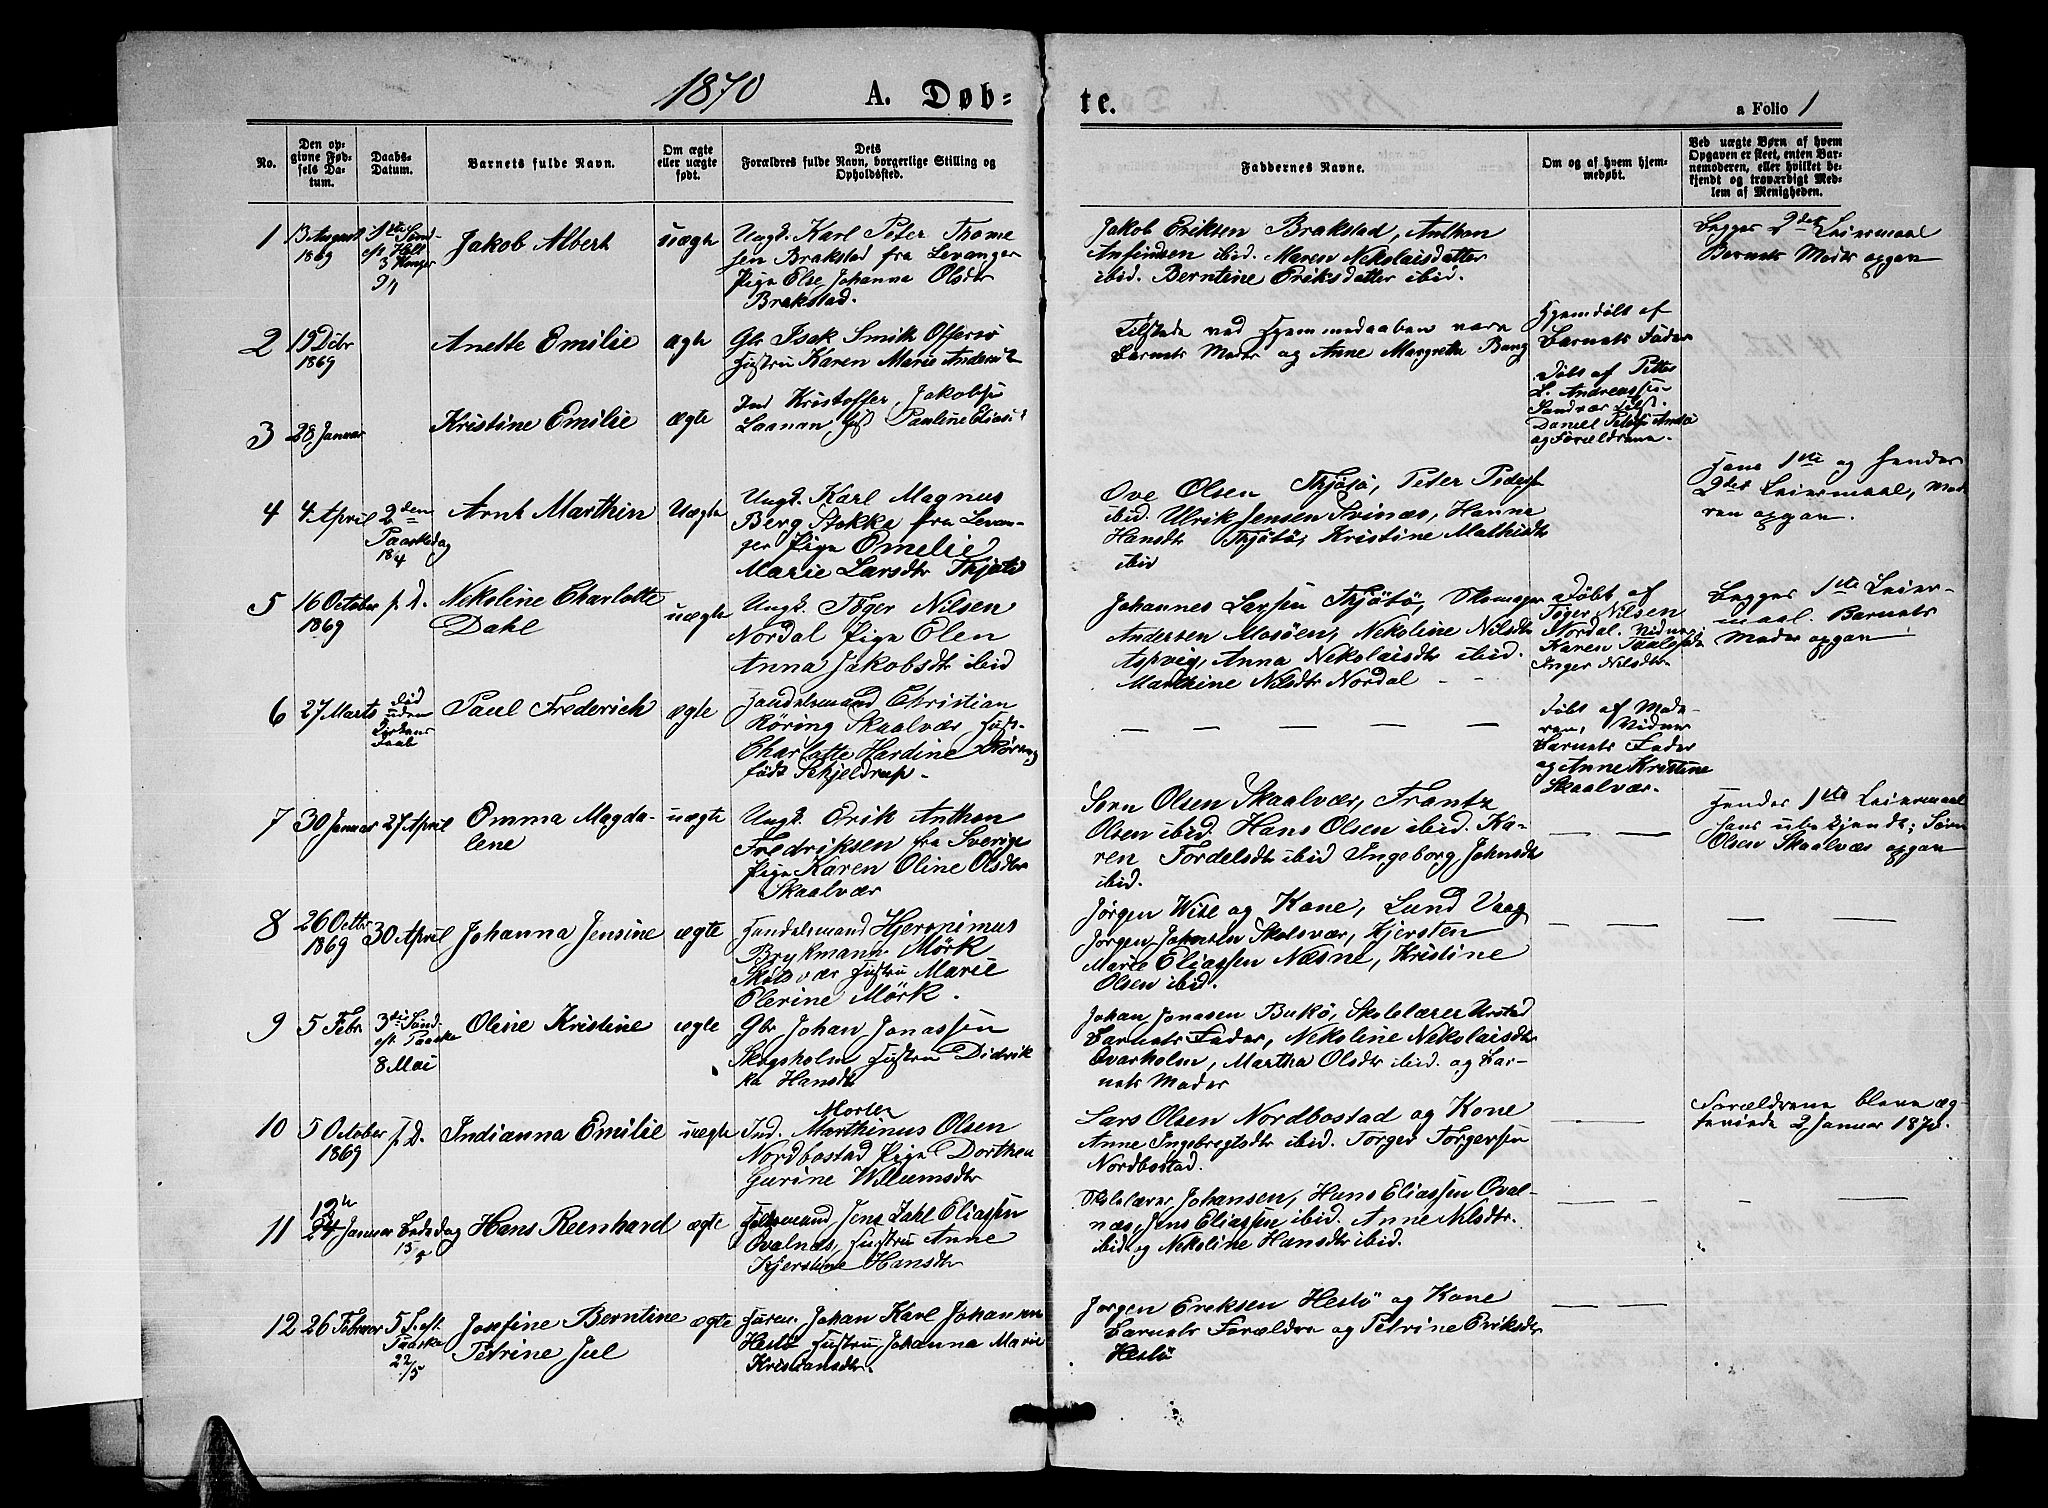 1870 A. Døb=
te.
a Folio 1
No.
Den op=
givne Fød=
sels Da=
tum.
Daabs=
Datum.
Barnets fulde Navn.
Om ægte
eller uægte
født.
Dets
Forældres fulde Navn, borgerlige Stilling og
Opholdssted.
Faddernes Navne.
Om og af hvem hjem=
medøbt.
Ved uægte Børn af hvem
Opgaven er skeet, enten Bar=
nemoderen, eller hvilket be=
kjendt og troværdigt Med=
lem af Menigheden.
1
13 August
1869
1ste Sönd-
eft. Hell.
3 Konger
9/1
Jakob Albert
uægte
Ungk. Karl Peter Thome
sen Brakstad fra Levanger
Pige Else Johanna Olsdtr
Brakstad.
Jakob Eriksen Brakstad, Anthon
Anfindsen ibid. Maren Nikolaisdatter
ibid. Berntine Eriksdatter ibid.
Begges 2det Leiermaal
Barnets Moder opgav
2
19 Dcbr
1869
Anette Emilie
ægte
Gbr Isak Smith Offersö
Hustru Karen Marie Andersd
Tilstede ved Hjemmedaaben vare
Barnets Moder og Anne Margrethe Bang
Hjemdöbt af
Barnets Fader
3
28 Januar
Kristine Emilie
ægte
Ind Kristoffer Jakobsen
Laanan Hst Pauline Eliasd
Döbt af Petter
L. Andreassen
Sandvær
Daniel
og Forældrene.
4
4 April
2den
Paaskedag
18/4
Arnt Marthin
Uægte
Ungk. Karl Magnus
Berg Stokka fra Levan-
ger Pige Emelie
Marie Larsdtr Thjötö
Ove Olsen Thjötö, Peter Peders
ibid. Ulrik Jensen Svinæs, Hanne
Hansdtr Thjötö, Kristine Mathisdtr
ibid
Hans 1ste og Hendes
2det Leiermaal, Mode
ren opgav.
5
16 October
1869
s. D.
Nekoline Charlotte
Dahl
uægte
Ungk. Töger Nilsen
Nordal Pige Elen
Anna Jakobsdtr ibid
Johannes Larsen Thjötö,
Andersen Mosöen, Nekoline Nilsdtr
Aspvig, Anna Nekolaisdtr ibid.
Marthine Nilsdtr Nordal
Döbt af
Töger Nilsen
Nordal. Vidner
Karen Paalsdtr
Inger Nilsdtr
Begges 1ste Leier-
maal. Barnets
Moder opgav
6
27 Marts
död
uden
Kirkens
Daab
Paul Frederich
ægte
Handelsmand Christian
Röring Skaalvær Hust.
Charlotte Hardine Röring
födt Schjeldrup.
Döbt af Mode-
ren, Vidner
Barnets Fader
og Anne Kristine
Skaalvær.
7
30 Januar
24 April
Emma Magda-
lene
uægte
Ungk. Erik Anthon
Fredriksen fra Sverige
Pige Karen Oline Olsdtr
Skaalvær
Sörn Olsen Skaalvær, Frantz
Olsen ibid. Hans Olsen ibid. Ka-
ren Tordelsdtr ibid Ingeborg Johnsdtr
ibid.
Hendes 1ste Leiermaal
hans ubekjendt; Sörn
Olsen Skaalvær opgav
8
26 Octbr
1869
30 April
Johanna Jensine
ægte
Handelsmand Hjeronimus
Brykmann Mörk
Skolsvær Hustru Marie
Elerine Mörk.
Jörgen Wise og Kone, Lund Vaag
Jörgen Johnsen Skolsvær, Kjersten
Marie Eliassen Næsne, Kristine
Olsen ibid.
9
5 Febr
3die Sönd-
eft. Paaske
8 Mai
Oline Kristine
ægte
Gbr Johan Jonassen
Skogsholm Hustru Didrik
ka Hansdtr
Johan Jonasen Bukö, Skolelærer Urstad
Barnets Fader, Nekoline Nekolaisdtr
Ovarholm, Martha Olsdtr ibid. og Bar-
nets Moder
10
5 October
1869
s. D.
Indianna Emilie
uægte
Morten
Ind. Marthinus Olsen
Nordbostad Pige Dorthea
Gurine Willumsdtr
Lars Olsen Nordbostad og Kone
Anne Ingebregtsdtr ibid. Torger Torgersen
Nordbostad.
Forældrene bleve æg-
teviede 2 Januar 1870.
11
12te
24 Januar
Bededag
13/5
Hans Reenhard
ægte
Jens Dahl Eliassen
Ovalnæs, Hustru Anne
Kjerstine Hansdtr
Skolelærer Johansen, Hans Eliassen Oval-
næs, Jens Eliassen ibid. Anne Nilsdtr.
ibid og Nekoline Hansdtr ibid.
12
26 Februar
5 S. eft.
Paaske
22/5
Josefine Berntine
Petrine Jul
ægte
Johan Karl Johansen
Heslö Hustru Johanna Marie
Kristiansdtr.
Jörgen Ereksen Heslö og Kone
Barnets Forældre og Petrine Eriksdtr
Heslö